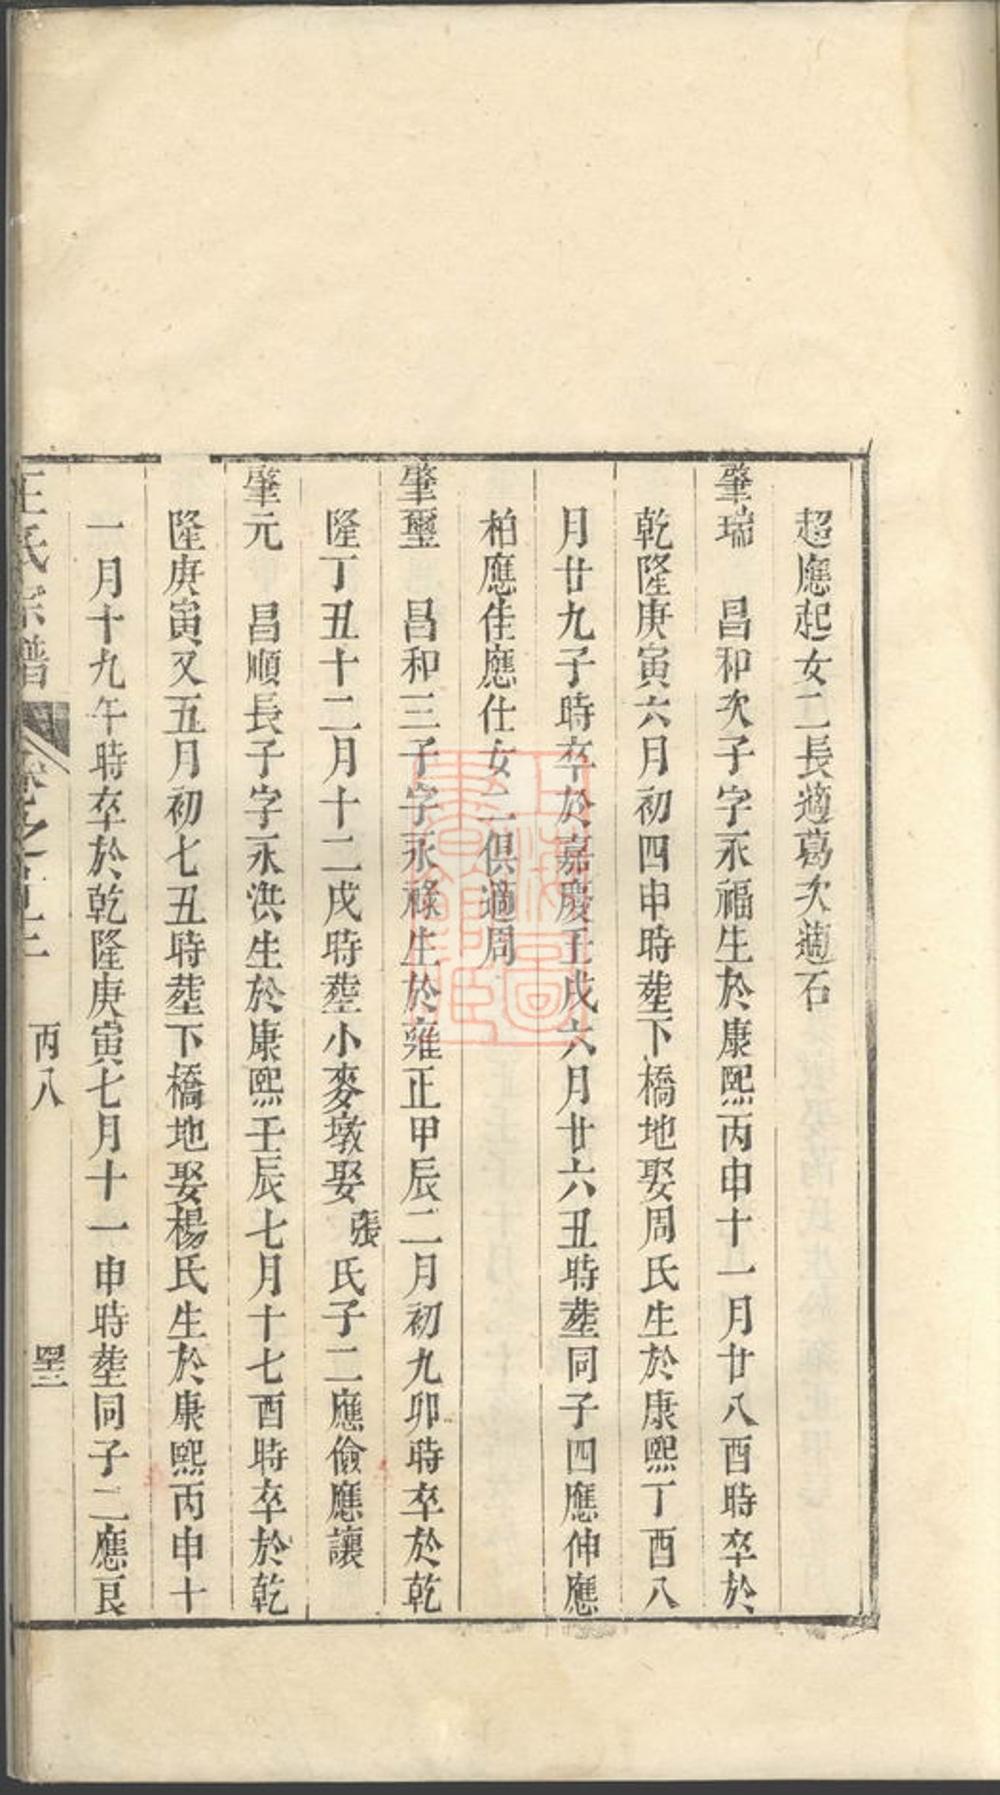 超應起女二長適葛次適石
肇瑞　昌和次子字永福生於康熙丙申十一月廿八酉時卒於
乾隆庚寅六月初四申時塟下橋地娶周氏生於康熙丁酉八
月廿九子時卒於嘉慶壬戌六月廿六丑時塟同子四應伸應
柏應佳應仕女二俱適周
肇璽　昌和三子字永祿生於雍正甲辰二月初九卯時卒於乾
隆丁丑十二月十二戌時塟小麥墩娶張氏子二應儉應讓
肇元　昌順長子字永洪生於康熙壬辰七月十七酉時卒於乾
隆庚寅又五月初七丑時塟下橋地娶楊氏生於康熙丙申十
一月十九午時卒於乾隆庚寅七月十一申時塟同子二應良
王氏宗譜　卷之　丙八
上海圖書館藏